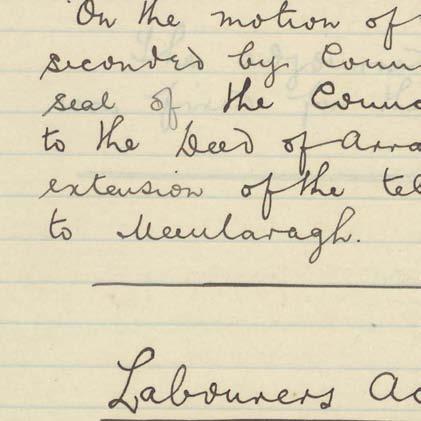 On the motion of
seconded by Coun
seal of the Counc
to the Deed of Arra
extension of the tel
to Meenlaragh.
Labourers Ac